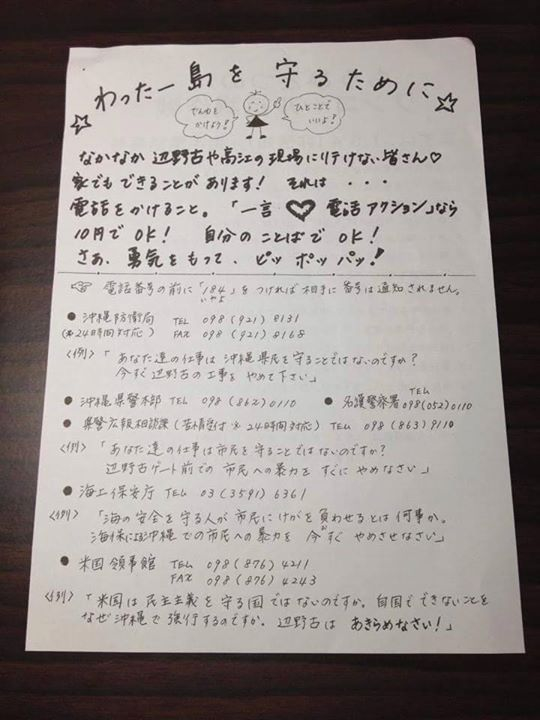 わったー島を守るために
でんわを
かけよう!
ひとことで
いいよ!
なかなか 辺野古や高江の現場に行けない皆さん♡
家でもできることがあります! それは・・・
電話をかけること。「一言♥電話アクション」なら
10円でOK! 自分のことばでOK!
さあ、勇気をもって、ピッ ポッ パッ!
☞ 電話番号の前に「184」をつければ相手に番号は通知されません。
いやよ
● 沖縄防衛局 TEL 098(921)8131
(※24時間対応) FAX 098(921)8168
<例>「あなた達の仕事は沖縄県民を守ることではないのですか?
今すぐ辺野古の工事をやめて下さい」
● 沖縄県警本部 TEL 098(862)0110 ● 名護警察署 TEL 098(052)0110
● 県警広報相談課(苦情受付 ※24時間対応) TEL 098(863)9110
<例>「あなた達の仕事は市民を守ることではないのですか?
辺野古ゲート前での市民への暴力をすぐにやめなさい」
● 海上保安庁 TEL 03(3591)6361
<例>「海の安全を守る人が市民にけがを負わせるとは何事か。
海保による沖縄での市民への暴力を今すぐやめさせなさい」
● 米国領事館 TEL 098(876)4211
FAX 098(876)4243
<例>「米国は民主主義を守る国ではないのですか。自国でできないことを
なぜ沖縄で強行するのですか。辺野古はあきらめなさい!」